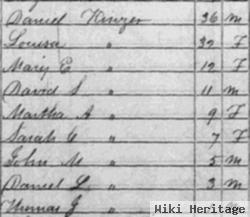 Daniel Kinzer 36 m
Louisa " 32 F
Mary E " 12 F
David S " 11 m
Martha A " 9 F
Sarah C " 7 F
John M " 5 m
Daniel L " 3 m
Thomas J "
Wiki Heritage